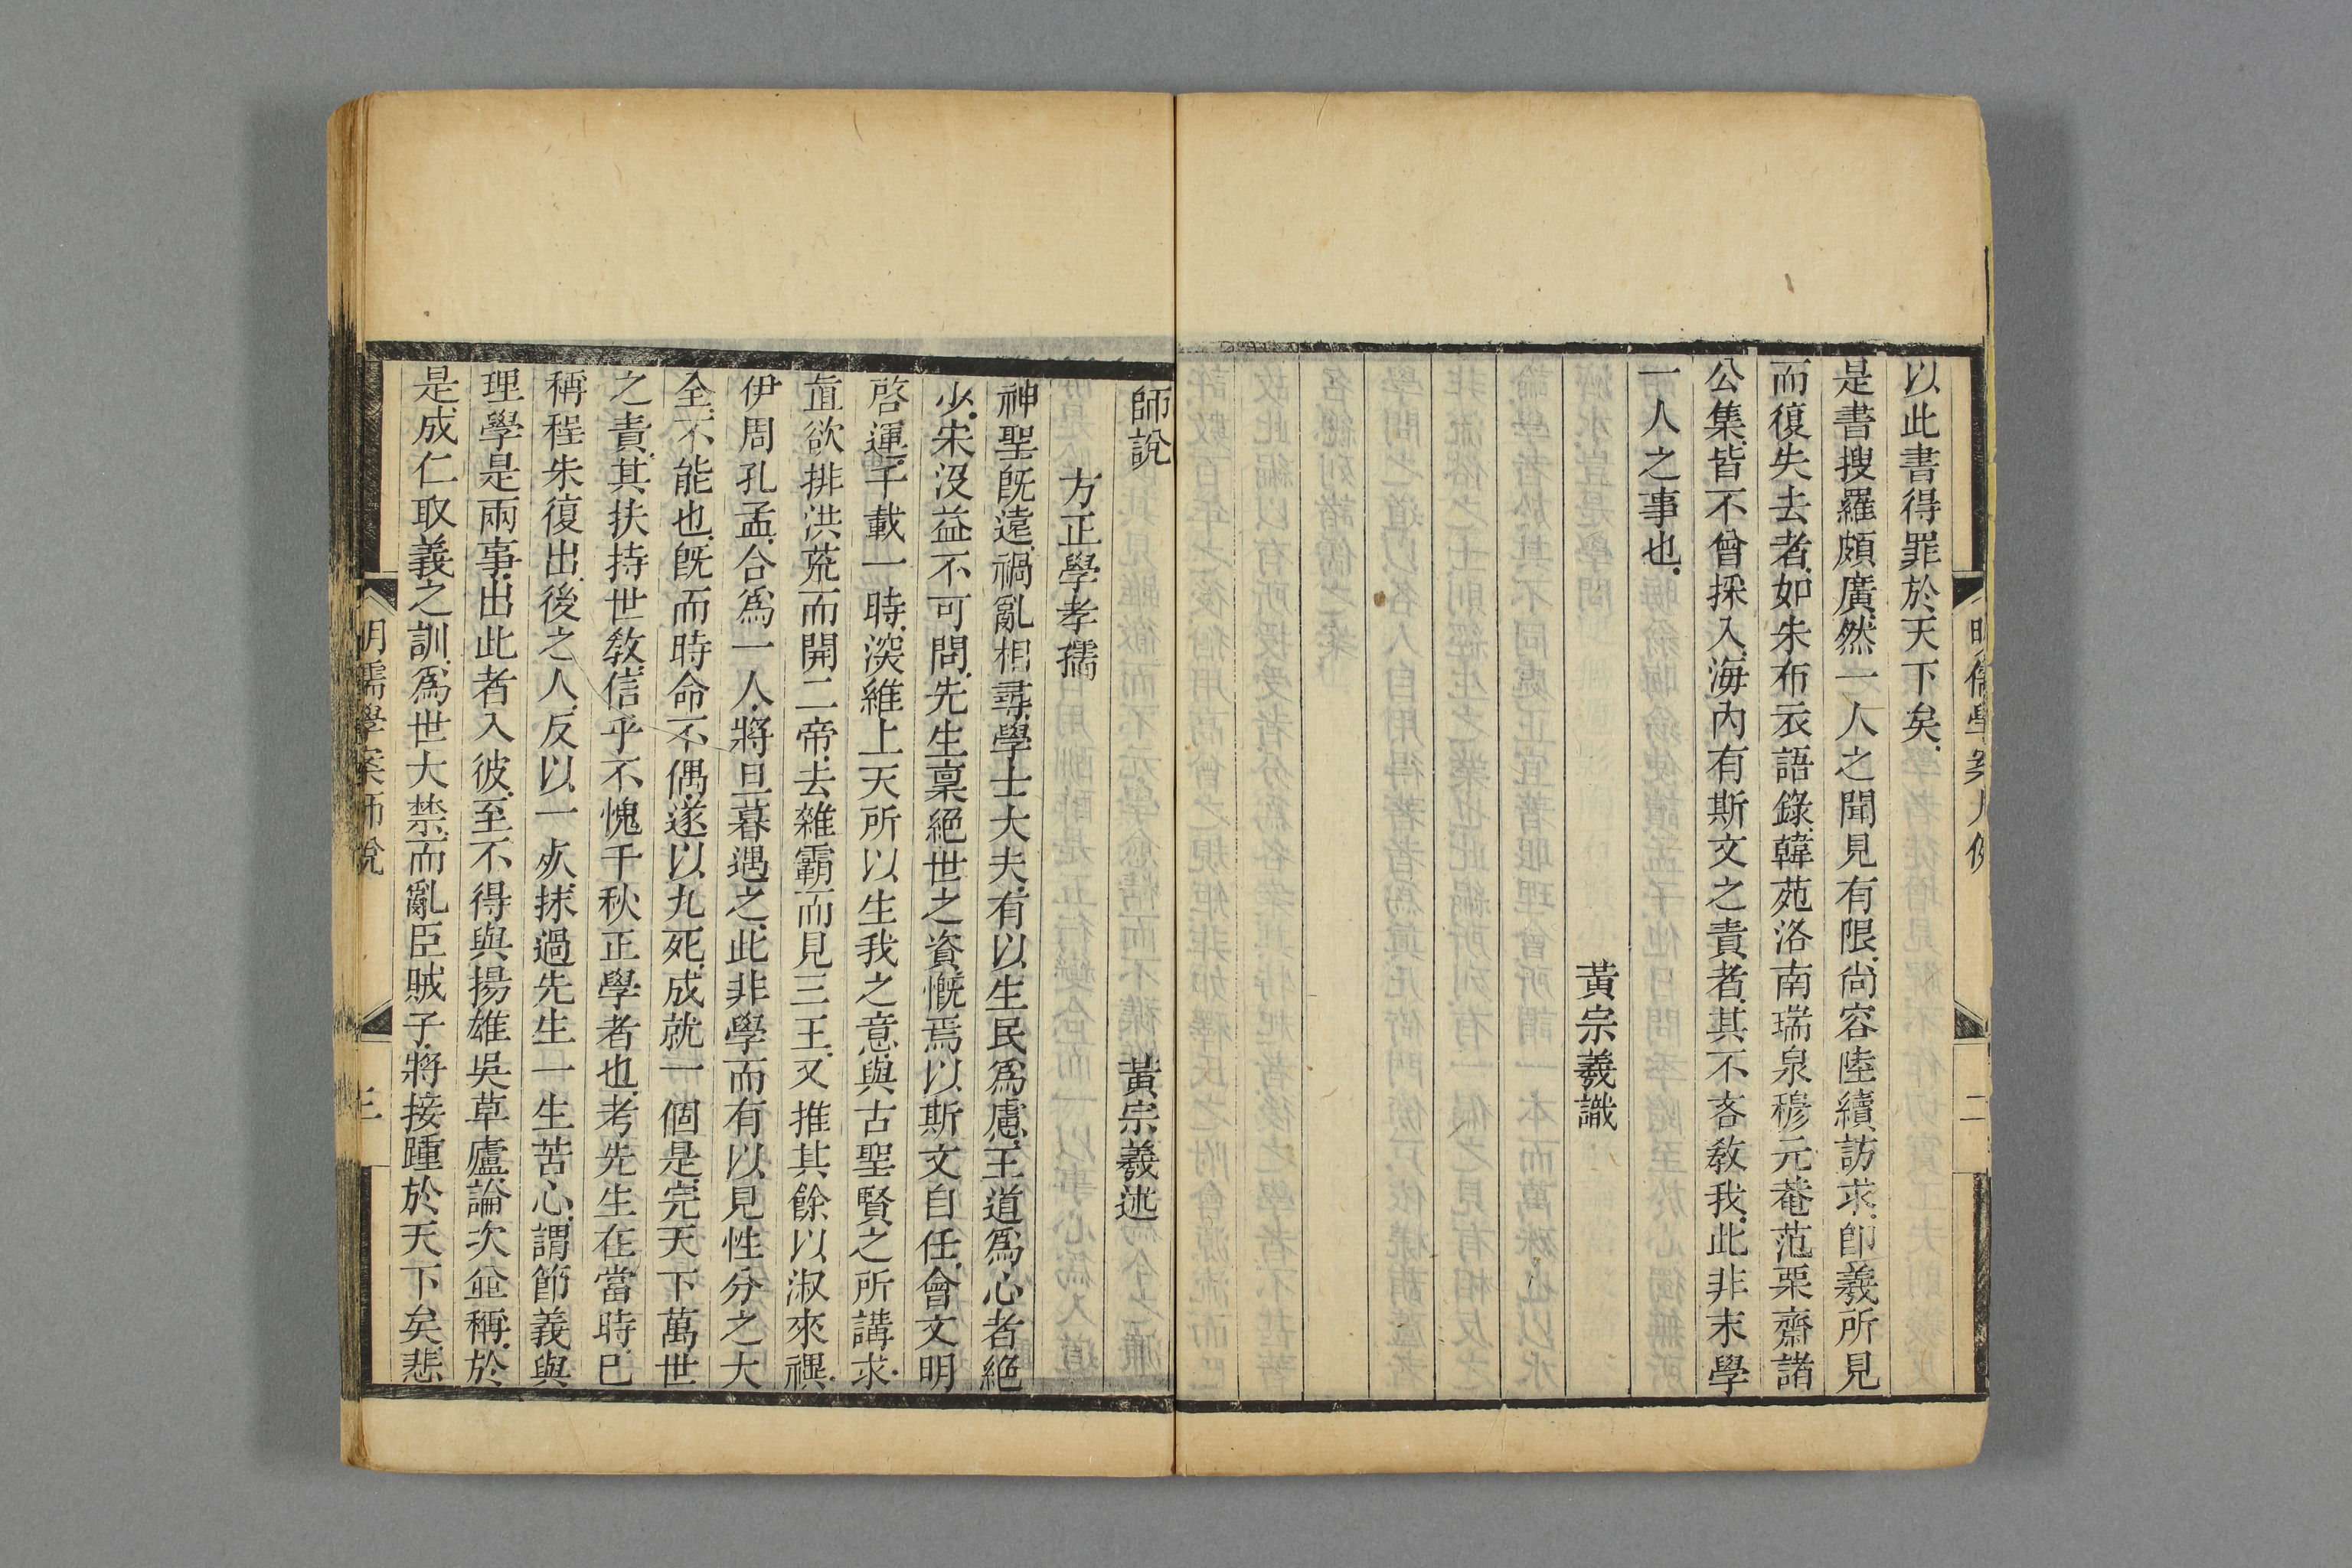 明儒學案 凡例
二
以此書得罪於天下矣
是書搜羅頗廣然一人之聞見有限尙容陸續訪求卽羲所見
而復失去者如朱布衣語錄韓苑洛南瑞泉穆元菴范栗齋諸
公集皆不曾採入海內有斯文之責者其不吝敎我此非末學
一人之事也
黃宗羲識
師說
黃宗羲述
方正學孝孺
神聖旣遠禍亂相尋學士大夫有以生民爲慮王道爲心者絕
少宋沒益不可問先生稟絕世之資慨焉以斯文自任會文明
啓運千載一時深維上天所以生我之意與古聖賢之所講求
直欲排洪荒而開二帝去雜霸而見三王又推其餘以淑來禩
伊周孔孟合爲一人將旦暮遇之此非學而有以見性分之大
全不能也旣而時命不偶遂以九死成就一個是完天下萬世
之責其扶持世敎信乎不愧千秋正學者也考先生在當時已
稱程朱復出後之人反以一死抹過先生一生苦心謂節義與
理學是兩事出此者入彼至不得與揚雄吳草廬論次並稱於
是成仁取義之訓爲世大禁而亂臣賊子將接踵於天下矣悲
明儒學案 師說
三